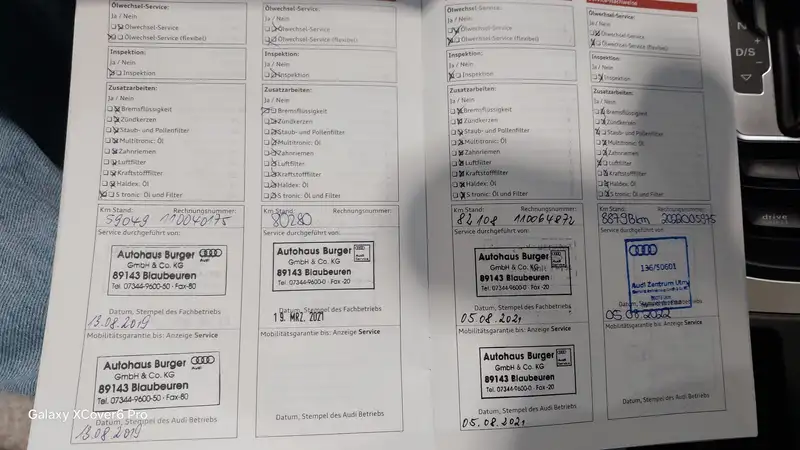 Ölwechsel-Service:
Ja / Nein
Ölwechsel-Service
Ölwechsel-Service (flexibel)
Inspektion:
Ja / Nein
Inspektion
Zusatzarbeiten:
Ja / Nein
Bremsflüssigkeit
Zündkerzen
Staub- und Pollenfilter
Multitronic: Öl
Zahnriemen
Luftfilter
Kraftstofffilter
Haldex: Öl
S tronic: Öl und Filter
Km Stand: Rechnungsnummer:
59049 110040175
Service durchgeführt von:
Autohaus Burger
Audi
GmbH & Co. KG
89143 Blaubeuren
Tel. 07344-9600-50 · Fax-80
Datum, Stempel des Fachbetriebs
13.08.2019
Mobilitätsgarantie bis: Anzeige Service
Autohaus Burger
Audi
GmbH & Co. KG
89143 Blaubeuren
Tel. 07344-9600-50 · Fax-80
Datum, Stempel des Audi Betriebs
13.08.2019
Ölwechsel-Service:
Ja / Nein
Ölwechsel-Service
Ölwechsel-Service (flexibel)
Inspektion:
Ja / Nein
Inspektion
Zusatzarbeiten:
Ja / Nein
Bremsflüssigkeit
Zündkerzen
Staub- und Pollenfilter
Multitronic: Öl
Zahnriemen
Luftfilter
Kraftstofffilter
Haldex: Öl
S tronic: Öl und Filter
Km Stand: Rechnungsnummer:
80280
Service durchgeführt von:
Autohaus Burger
Audi
Service
GmbH & Co. KG
89143 Blaubeuren
Tel. 07344-9600-0 · Fax -20
Datum, Stempel des Fachbetriebs
19. MRZ. 2021
Mobilitätsgarantie bis: Anzeige Service
Datum, Stempel des Audi Betriebs
Ölwechsel-Service:
Ja / Nein
Ölwechsel-Service
Ölwechsel-Service (flexibel)
Inspektion:
Ja / Nein
Inspektion
Zusatzarbeiten:
Ja / Nein
Bremsflüssigkeit
Zündkerzen
Staub- und Pollenfilter
Multitronic: Öl
Zahnriemen
Luftfilter
Kraftstofffilter
Haldex: Öl
S tronic: Öl und Filter
Km Stand: Rechnungsnummer:
82108 110064872
Service durchgeführt von:
Autohaus Burger
GmbH & Co. KG
89143 Blaubeuren
Tel. 07344-9600-0 · Fax -20
Datum, Stempel des Fachbetriebs
05.08.2021
Mobilitätsgarantie bis: Anzeige Service
Autohaus Burger
Audi
Service
GmbH & Co. KG
89143 Blaubeuren
Tel. 07344-9600-0 · Fax -20
Datum, Stempel des Audi Betriebs
05.08.2021
Service-Nachweise
Ölwechsel-Service:
Ja / Nein
Ölwechsel-Service
Ölwechsel-Service (flexibel)
Inspektion:
Ja / Nein
Inspektion
Zusatzarbeiten:
Ja / Nein
Bremsflüssigkeit
Zündkerzen
Staub- und Pollenfilter
Multitronic: Öl
Zahnriemen
Luftfilter
Kraftstofffilter
Haldex: Öl
S tronic: Öl und Filter
Km Stand: Rechnungsnummer:
88798km
Service durchgeführt von:
136/50601
Audi Zentrum Ulm
Datum, Stempel des Fachbetriebs
05.08.2022
Mobilitätsgarantie bis: Anzeige Service
Datum, Stempel des Audi Betriebs
N
D/S
+
−
drive
Galaxy XCover6 Pro